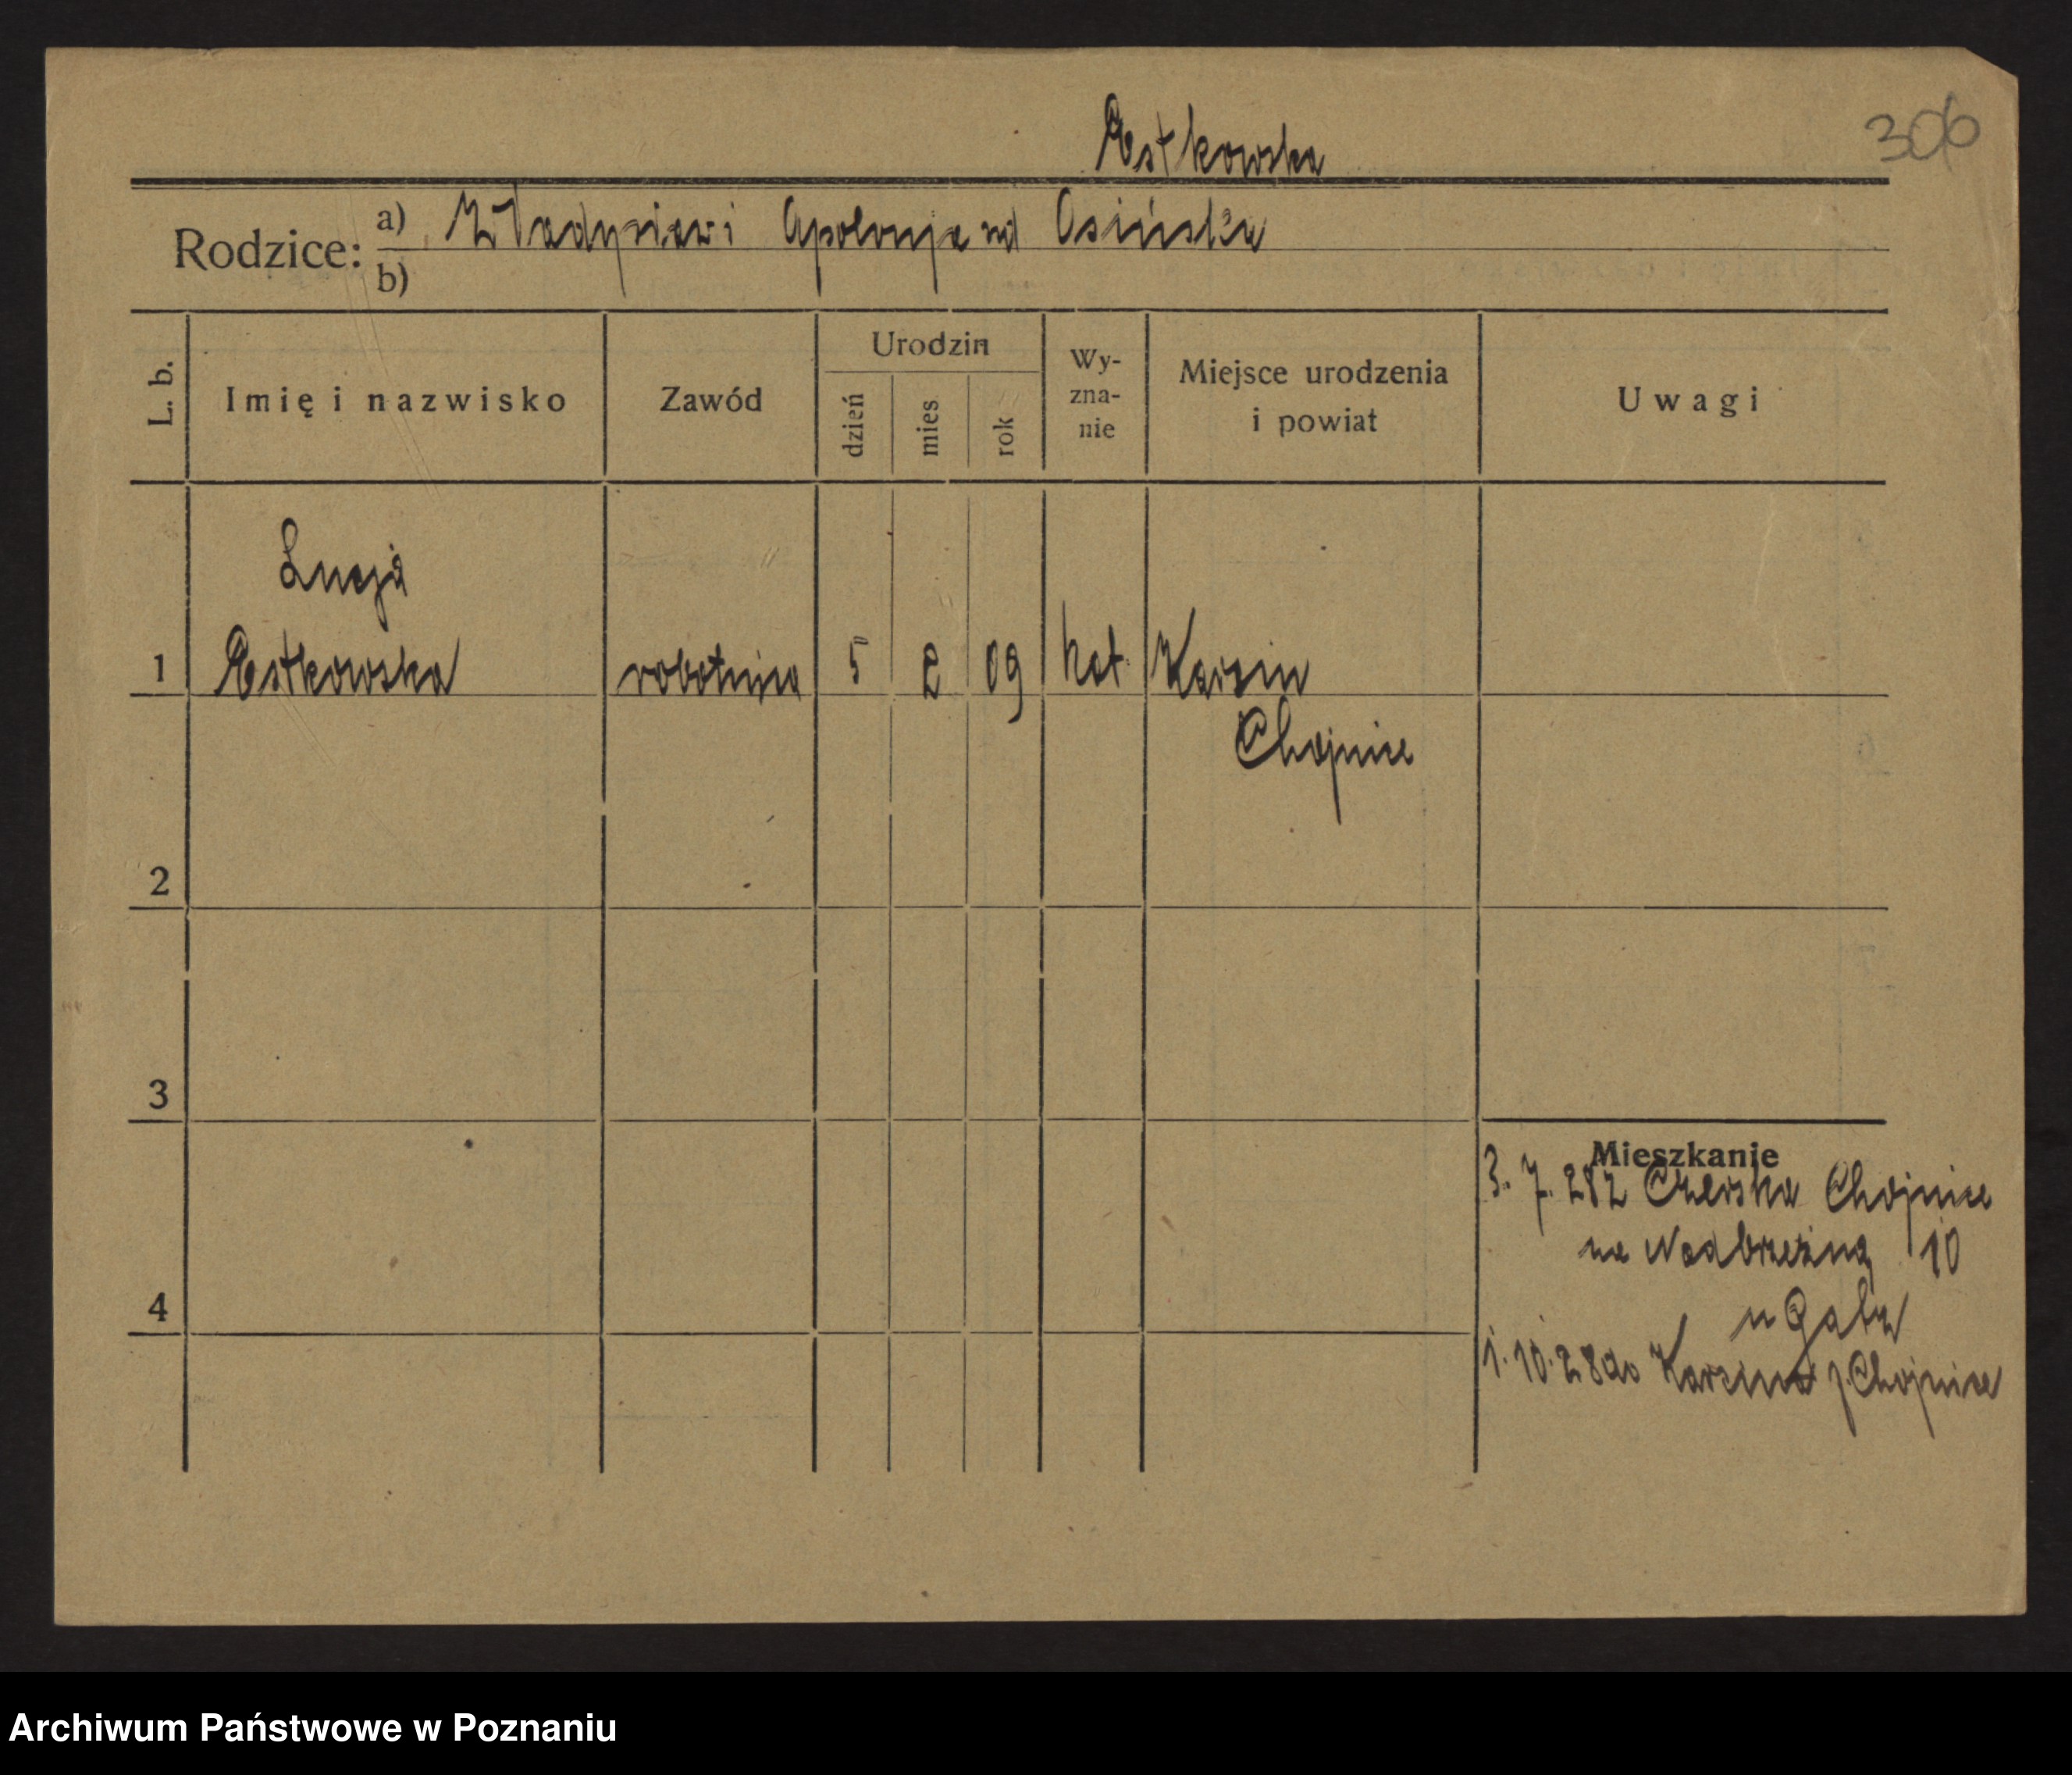 Estkowska
306
Rodzice: a) Władysław i Apolonja ud Osińska
b)
L. b.
Imię i nazwisko
Zawód
Urodzin
dzień
mies
rok
Wy-
zna-
nie
Miejsce urodzenia
i powiat
Uwagi
Łucja
1 Estkowska robotnica 5 2 09 kat. Karsin
Chojnice
2
3
Mieszkanie
3. 7. 28 z Czerska Chojnice
na Nadbrzeżną 10
u
4
1. 10. 28 do Karsina p. Chojnice
Archiwum Państwowe w Poznaniu